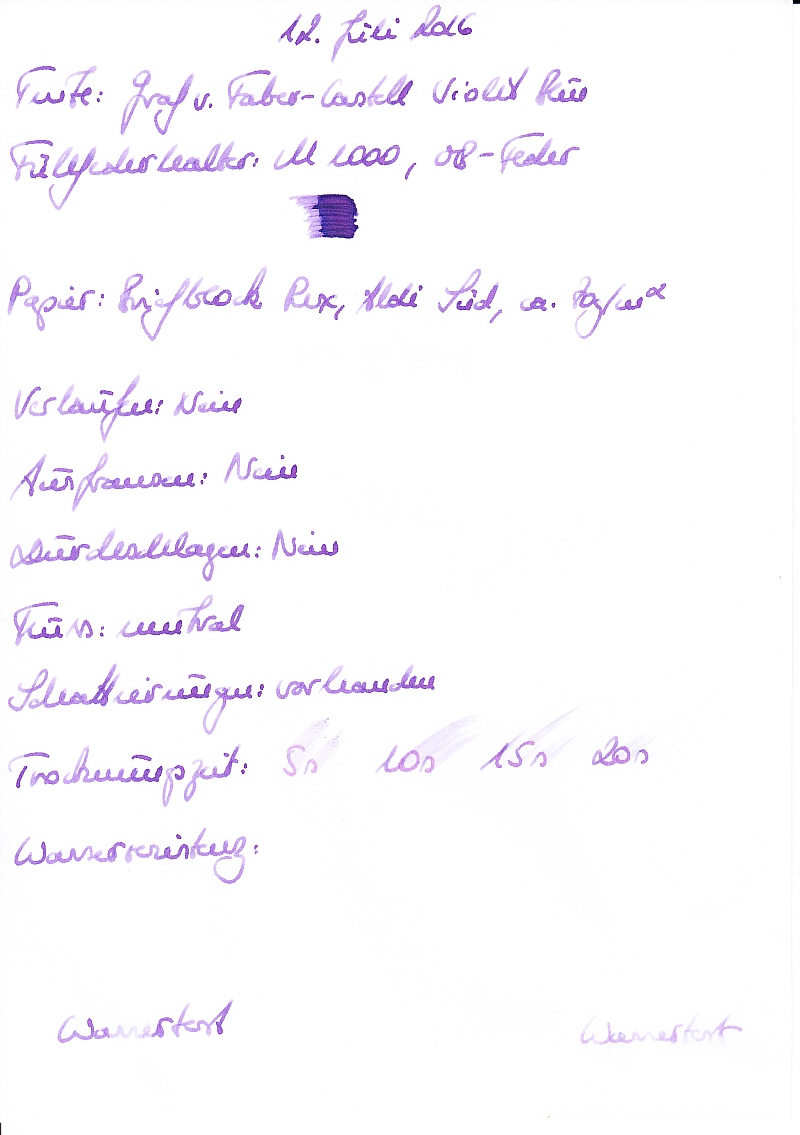 12. Juli 2016
Tinte: Graf v. Faber-Castell Violet Blue
Füllfederhalter: M 1000, OB-Feder
Papier: Briefblock Rex, Aldi Süd, ca. 70g/m²
Verlaufen: Nein
Ausfransen: Nein
Durchschlagen: Nein
Fluss: neutral
Schattierungen: vorhanden
Trocknungszeit: 5s 10s 15s 20s
Wasserresistenz:
Wassertest Wassertest